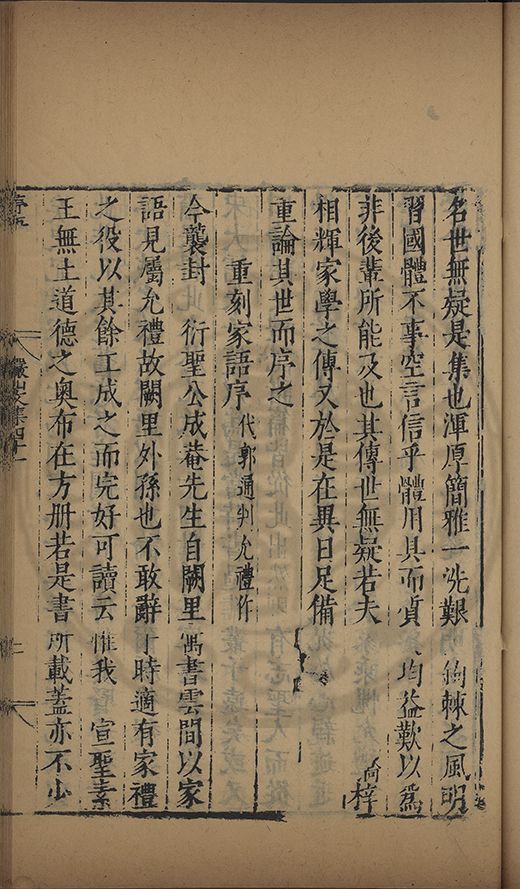 名世無疑是集也渾厚簡雅一洗艱鉤棘之風明
習國體不事空言信乎體用具而貞均益歎以爲
非後輩所能及也其傳世無疑若夫尚梓
相輝家學之傳又於是在異日足備
重論其世而序之
重刻家語序代郭通判允禮作
今襲封 衍聖公成菴先生自闕里寓書雲間以家
語見屬允禮故闕里外孫也不敢辭于時適有家禮
之役以其餘工成之而完好可讀云惟我 宣聖素
王無土道德之奧布在方册若是書所載蓋亦不少
儼山文集四十一